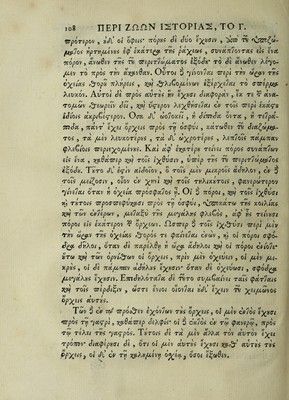 108 ΠΕΡΙ ΖΩΩΝ ΙΣΤΟΡΙΑΣ, ΤΟ Γ.
πρότερον, οἱ ὄφεις πόρους δύο ἔχουσιν, ἀπὸ τοῦ
ἠρτημένους ἐφ' ἑκάτερα τῆς ῥάχεως, συνάπτοντας εἰς ἕνα
πόρον, ἄνωθεν τῆς τοῦ περιττώματος ἐξόδου· τὸ δὲ ἄνωθεν λέγο-
μεν τὸ πρὸς τὴν ἄκανθαν. Οὗτοι δὲ γίνονται περὶ τὴν ὥραν τῆς
ὀχείας πλήρεις, καὶ ἐξέρχεται τὸ σπέρμα
λευκόν. Αὐτοὶ δὲ πρὸς αὑτοὺς ἣν ἔχουσι διαφορὰν, ἔκ τε τῶν ἀνα-
τομῶν θεωρεῖν δεῖ, καὶ ὕστερον λεχθήσεται ἐν τοῖς περὶ ἕκαστα
ἀκριβέστερον. Ὅσα δὲ ᾠοτοκεῖ, ἢ δίποδα ὄντα, ἢ τετρά-
ποδα, πάντ' ἔχει ὄρχεις πρὸς τῇ ὀσφύϊ, κάτωθεν τοῦ διαζώμα-
τος, τὰ μὲν λευκοτέρους, τὰ δ' ὠχροτέρους, λεπτοῖς πάμπαν
φλεβίοις περιεχομένους. Καὶ ἀφ' ἑκατέρου τείνει πόρος συνάπτων
εἰς ἕνα, καθάπερ καὶ τοῖς ἰχθύσιν, ὑπὲρ τῆς τοῦ περιττώματος
ἐξόδου. Τοῦτο δ' ἐστὶν αἰδοῖον, ὃ τοῖς μὲν μικροῖς ἄδηλον, ἐν δὲ
τοῖς μείζοσιν, οἷον ἐν χηνὶ καὶ τοῖς τηλικούτοις, φανερώτερον
γίνεται ὅταν ἡ ὀχεία πρόσφατος ᾖ. Οἱ δὲ πόροι, καὶ τοῖς ἰχθύσι
καὶ τούτοις προσπεφύκασι πρὸς τῇ ὀσφύϊ, ὑποκάτω τῆς κοιλίας
καὶ τῶν ἐντέρων, μεταξὺ τῆς μεγάλης φλεβὸς, ἀφ' ἧς τείνουσι
πόροι εἰς ἑκάτερον τῶν ὄρχεων. Ὥσπερ δὲ τοῖς ἰχθύσι περὶ μὲν
τὴν ὥραν τῆς ὀχείας τε φαίνεται ἐνὼν, καὶ οἱ πόροι σφό-
δρα δῆλοι, ὅταν δὲ παρέλθῃ ἡ ὥρα ἄδηλοι καὶ οἱ πόροι ἐνίοτε·
οὕτω καὶ τῶν ὀρνίθων οἱ ὄρχεις, πρὶν μὲν ὀχεύειν, οἱ μὲν μι-
κροὺς, οἱ δὲ πάμπαν ἀδήλους ἔχουσιν· ὅταν δὲ ὀχεύωσι, σφόδρα
μεγάλους ἔχουσιν. Ἐπιδηλότατα δὲ τοῦτο συμβαίνει ταῖς φάτταις
καὶ τοῖς πέρδιξιν, ὥστε ἔνιοι οἴονται οὐδ' ἔχειν τοῦ χειμῶνος
ὄρχεις αὐτούς.
Τῶν δὲ ἐν τῷ πρόσθεν ἐχόντων τοὺς ὄρχεις, οἱ μὲν ἐντὸς ἔχουσι
πρὸς τῇ γαστρὶ, καθάπερ δελφίς· οἱ δ' ἐκτὸς ἐν τῷ φανερῷ, πρὸς
τῷ τέλει τῆς γαστρός. Τούτοις δὲ τὰ μὲν ἄλλα τὸν αὐτὸν ἔχει
τρόπον· διαφέρουσι δὲ, ὅτι οἱ μὲν αὐτοὺς ἔχουσι καθ' αὑτοὺς τοὺς
ὄρχεις, οἱ δ' ἐν τῇ καλουμένῃ ὀσχέᾳ, ὅσοι ἔξωθεν.